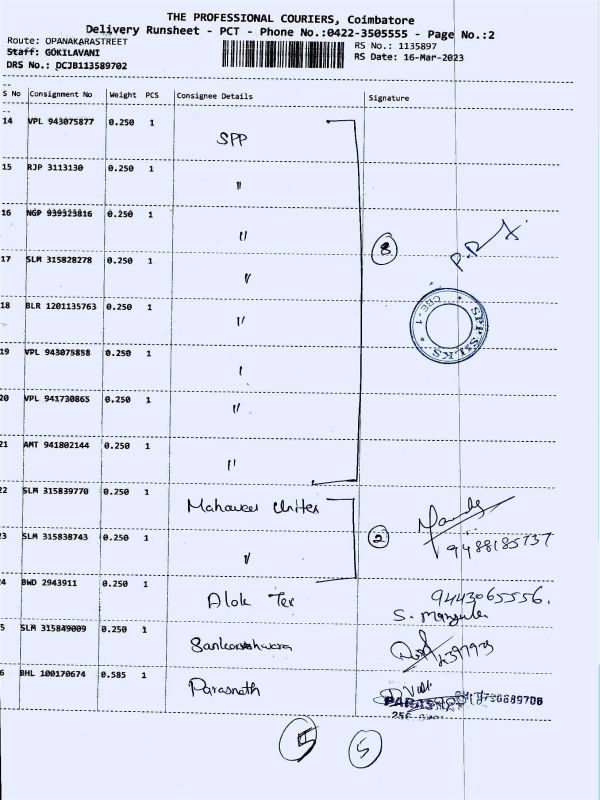 THE PROFESSIONAL COURIERS, Coimbatore
Delivery Runsheet - PCT - Phone No.:0422-3505555 - Page No.:2
Route: OPANAKARASTREET
Staff: GOKILAVANI
DRS No.: DCJB113589702
RS No.: 1135897
RS Date: 16-Mar-2023
S No Consignment No Weight PCS Consignee Details Signature
14 VPL 943075877 0.250 1 SPP
15 RJP 3113130 0.250 1 "
16 NGP 939323816 0.250 1 "
17 SLM 315828278 0.250 1 "
8
P.R
18 BLR 1201135763 0.250 1 "
SPP SILKS * CBE-1 *
19 VPL 943075858 0.250 1 "
20 VPL 941730865 0.250 1 "
21 AMT 941802144 0.250 1 "
22 SLM 315839770 0.250 1 Mahaveer
23 SLM 315838743 0.250 1 "
2
9488185737
24 BWD 2943911 0.250 1 Alok Tex 9443065556.
S.
5 SLM 315849009 0.250 1
6 BHL 100170674 0.585 1 Parasnath
5 5